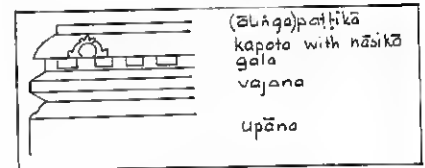 (āliṅga)paṭṭikā
kapota with nāsikā
gala
vajana
upāna